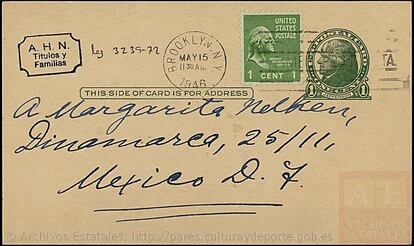 A. H. N.
Titulos y
Familias
leg 3239-72
BROOKLYN, N.Y.
MAY 15
11 30 AM
1946
UNITED
STATES
POSTAGE
1 CENT 1
THIS SIDE OF CARD IS FOR ADDRESS
A Margarita Nelken,
Dinamarca, 25/11,
Mexico D. F.
© Archivos Estatales, http://pares.culturaydeporte.gob.es